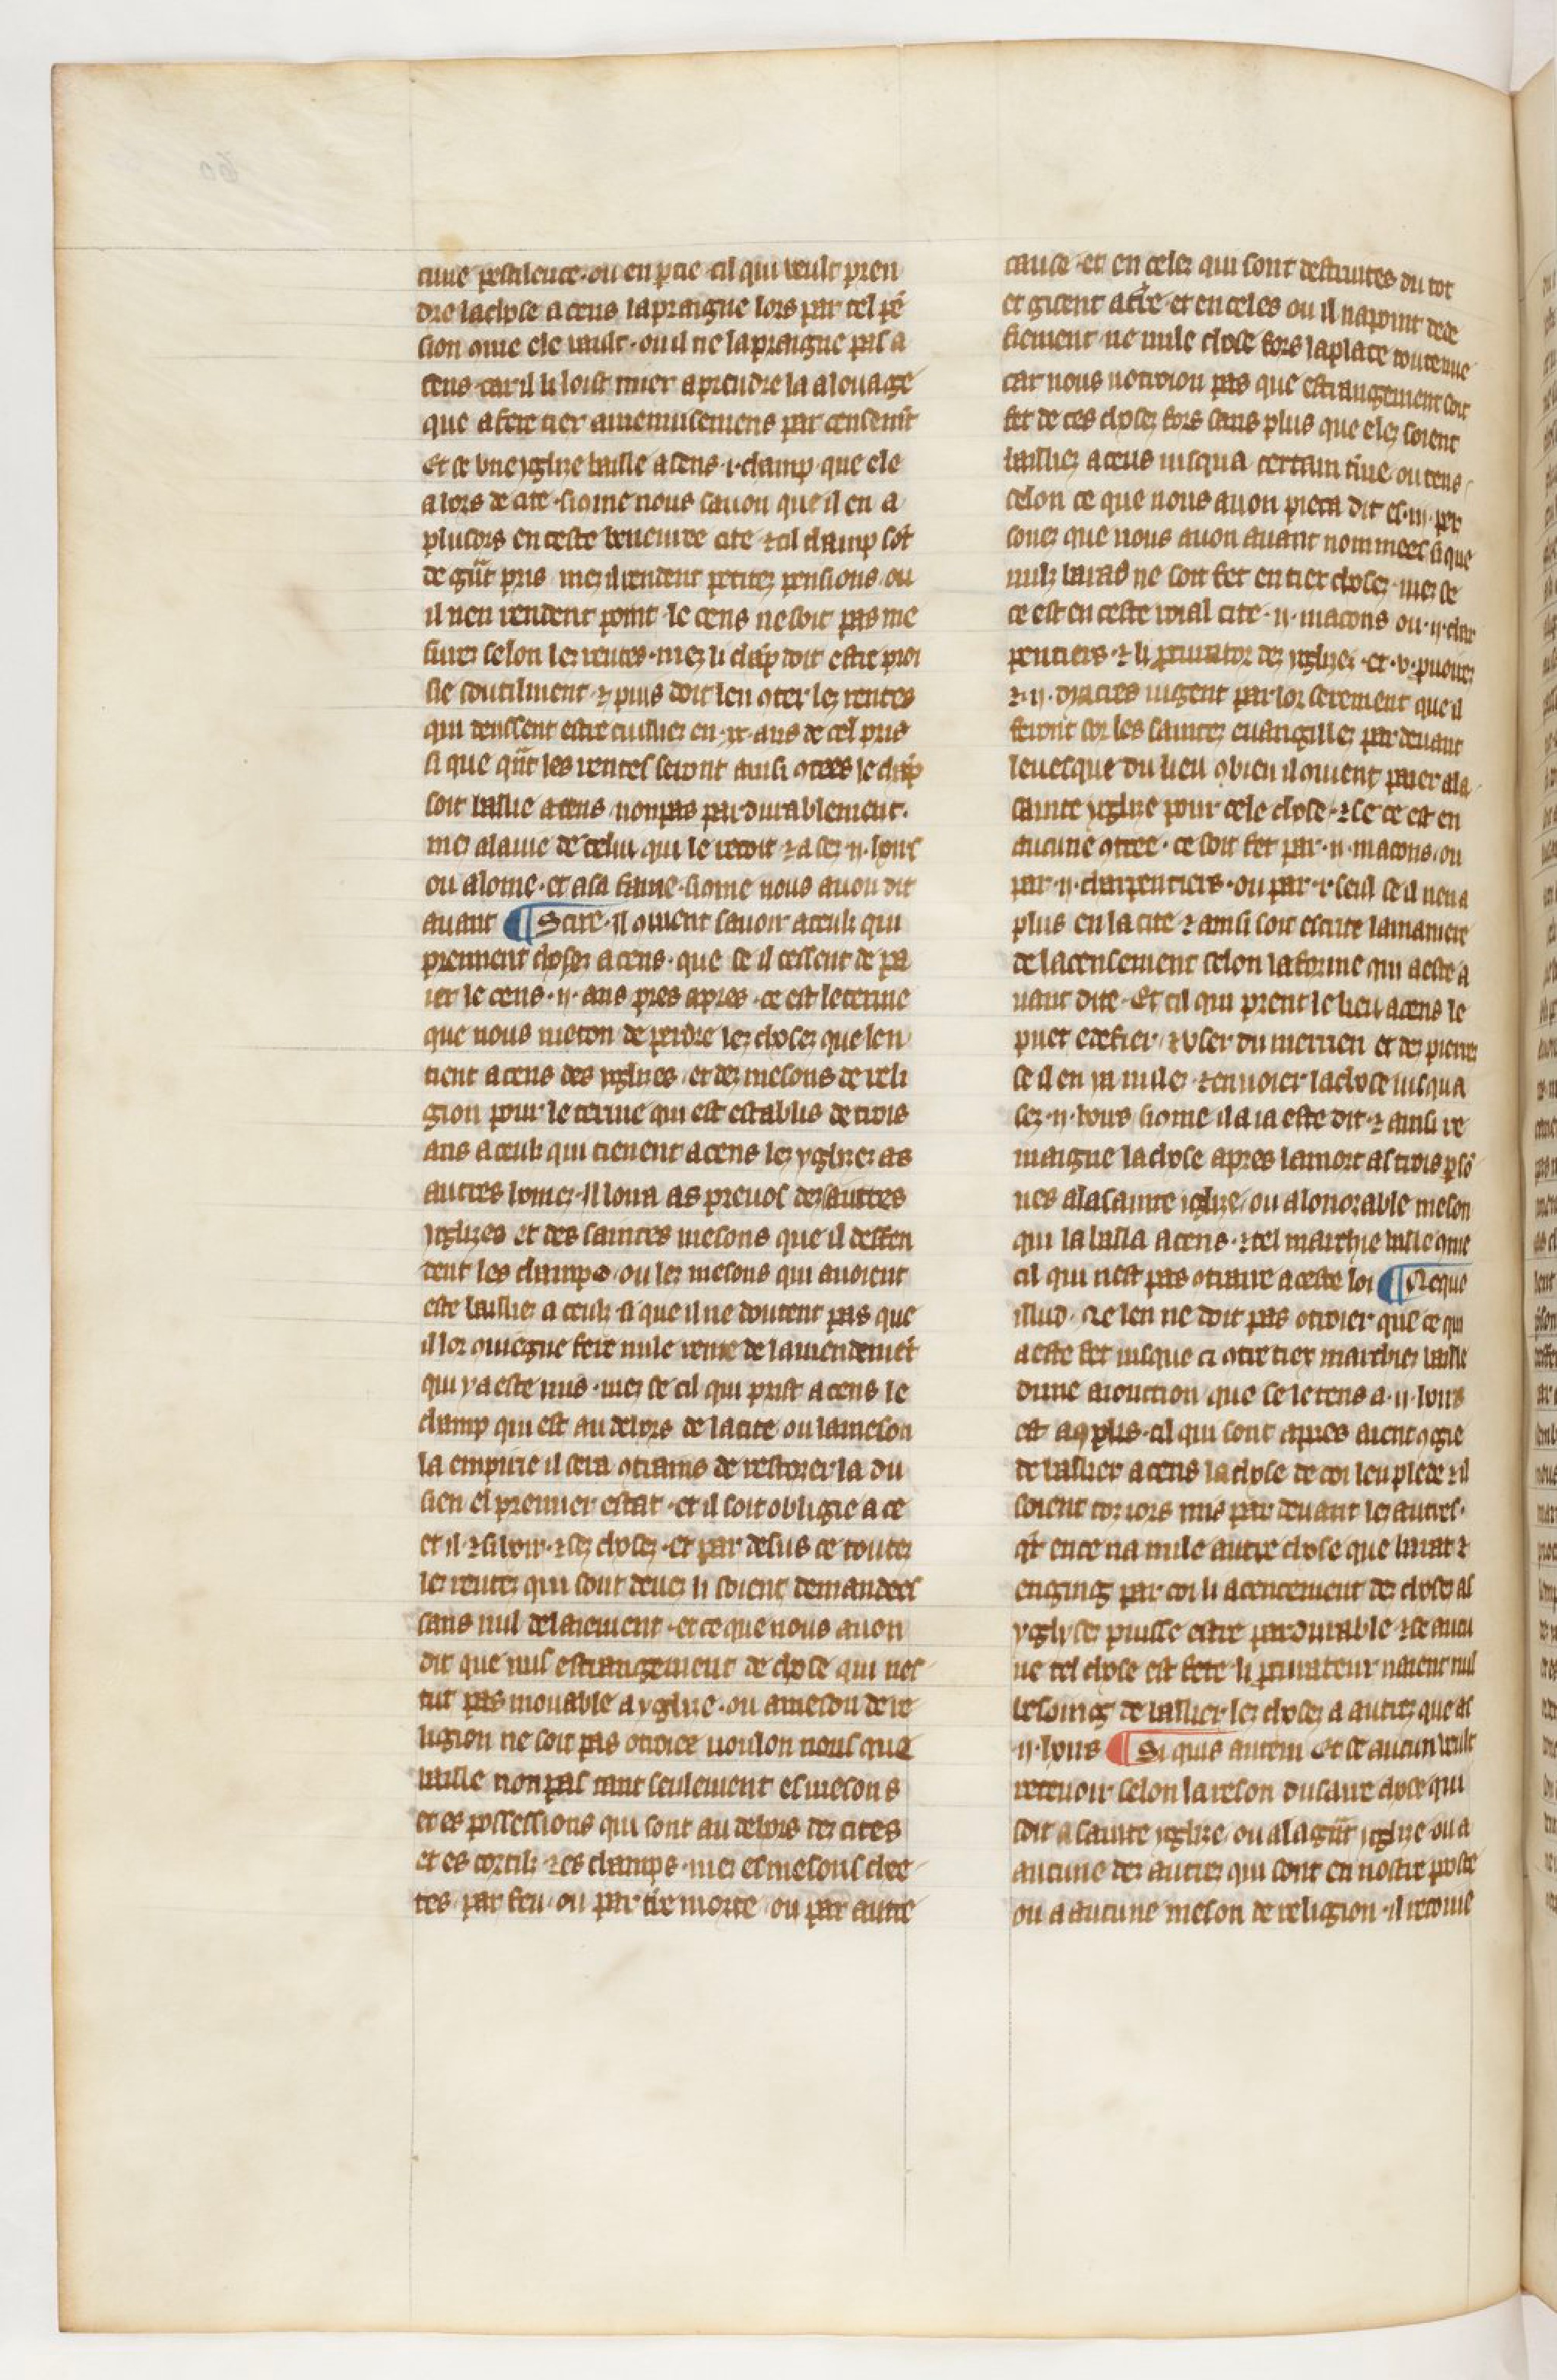 cune pestilence · ou en ptie cil qui veult pren
dre la chose a cens la praigne lors par tel pē
sion ōme ele vault · ou il ne la praigne pas a
cens · car il li loist mier a prendre la a louage
que a fere tier
Et se vne yglyse baille a cens · i · champ que ele
a hors de cite · si ōme nous sauon que il en a
plusors en ceste beneuree cite ⁊ cil champ sōt
de gūt pris mez il rendent petitez pensions ou
il nen rendent point · le cens ne soit pas me
surez selon lez rentes · mez li chāp doit estre proi
sie soutilment · ⁊ puis doit len oter lez rentes
qui deussent estre cuillies en · xx · ans de cel pris
si que qūt les rentes seront ainsi otees le chāp
soit baillie a cens non pas pardurablement ·
mez a la uie de celui qui le recoit ⁊ a sez · ii · hoirs
ou a lome · et a sa fame · si ōme nous auon dit
auant ¶ Scire · Il ōuient sauoir a ceulz qui
prennent chosez a cens · que se il cessent de pa
ier le cens · ii · ans pres apres · ce est le terme
que nous meton de perdre lez chosez que len
tient a cens des yglyses · et dez mesons de reli
gion pour le terme qui est establis de trois
ans a ceulz qui tienent a cens lez yglysez as
autres homez · Il loira as preuos dez sainttes
yglizes et des saintes mesons que il deffen
dent les champs · ou lez mesons qui auoient
este baillies a ceulz · si que il ne doutent pas que
il lor ōuiegne fere nule rente de lamendemēt
qui y a este mis · mez se cil qui prist a cens le
champ qui est au dehors de la cite ou la meson
la empirie il sera otrains de restorer la du
sien el premier estat · et il soit obligie a ce
et il ⁊ si hoir · ⁊ sez chosez · et par desus ce toutez
lez rentez qui sont deues li soient demandees
sans nul delaiement · et ce que nous auon
dit que nus estrangement de chose qui nes
tut pas mouable a yglyse · ou a meson de re
ligion ne soit pas otroiee uoulon nous que
uaille non pas tant seulement es mesons
et es possessions qui sont au dehors dez cites
et es cortilz ⁊ es champs · mez es mesons chee
tes par feu · ou par tre morte ou par autre
cause · et en celez qui sont destruites du tot
et gisent a tre · et en celes ou il na point dede
fiement ne nule chose fors la place toute nue
car nous notroion pas que estrangement soit
fet de ces chosez fors sans plus que elez soient
baillies a cens iusqua certain tine ou tens
selon ce que nous auon pieca dit es · iii · per
sones que nous auon auant nommees si que
nulz baras ne soit fet en tiex chosez · mez se
ce est en ceste roial cite · ii · macons ou · ii · char
pentiers · ⁊ li pcurator dez yglysez · et · v · puoirez
⁊ · ii · dyacres iugent par lor serement que il
feront sor les saintes euangillez par deuant
leuesque du lieu ōbien il ōuient paier a la
sainte yglyse pour cele chose · ⁊ se ce est en
aucune ōtree · ce soit fet par · ii · macons · ou
par · ii · charpentiers · ou par · i · seul se il nen a
plus en la cite ⁊ ainsi soit escrite la maniere
de lacensement selon la forme qui a este a
uant dite · Et cil qui prent le lieu a cens le
puet edefier · ⁊ user du merrien et dez pierrez
se il en ya nulez · ⁊ enuoier la chose iusqua
sez · ii · hoirs si ōme il a ia este dit · ⁊ ainsi re
maigne la chose apres la mort as trois psō
nes a la sainte yglyse · ou a lonorable meson
qui la bailla a cens · ⁊ tel marchie uaille ōme
cil qui nest pas ōtraire a ceste loi ¶ Neque
illud · Ne len ne doit pas otroier que ce qui
a este fet iusque ci ōtre tiex marchiez uaille
dune aiouction que se le cens a · ii · hoirs
est aōplis · cil qui sont apres aient ōgie
de baillier a cens la chose de coi len plede ⁊ il
soient toziors mis par deuant lez autres ·
qr en ce na nule autre chose que barat ⁊
enging par coi li acencement dez chosez as
yglysez puisse estre pardurable · ⁊ se aucu
ne tel chose est fete · li pcurateur naient nul
besoing de baillier lez chosez a autrez que as
ii · hoirs ¶ Si quis autem Et se aucun ueult
receuoir selon la reson dusaire chose qui
soit a sainte yglyse · ou a la gūt yglyse · ou a
aucune dez autrez qui sont en nostre poste
ou a aucune meson de religion · il recoiue